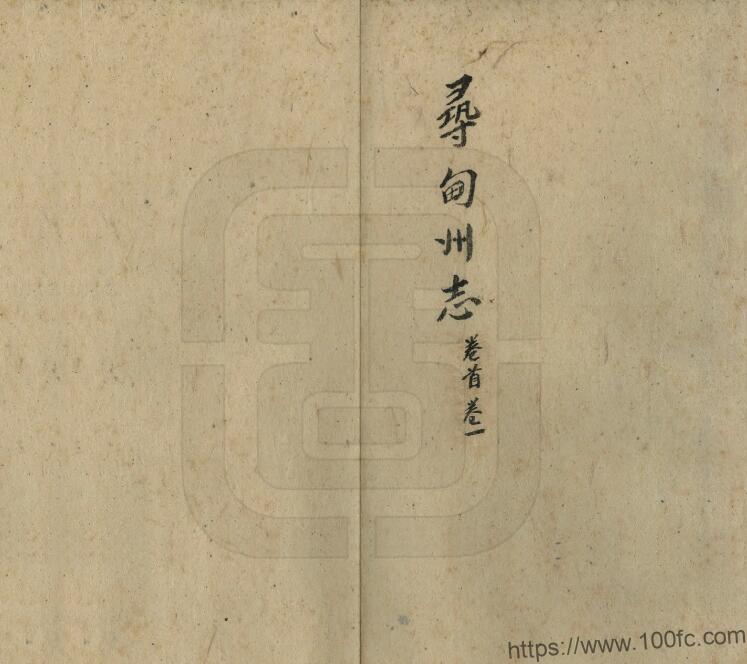 尋甸州志
卷首 卷一
https://www.100fc.com